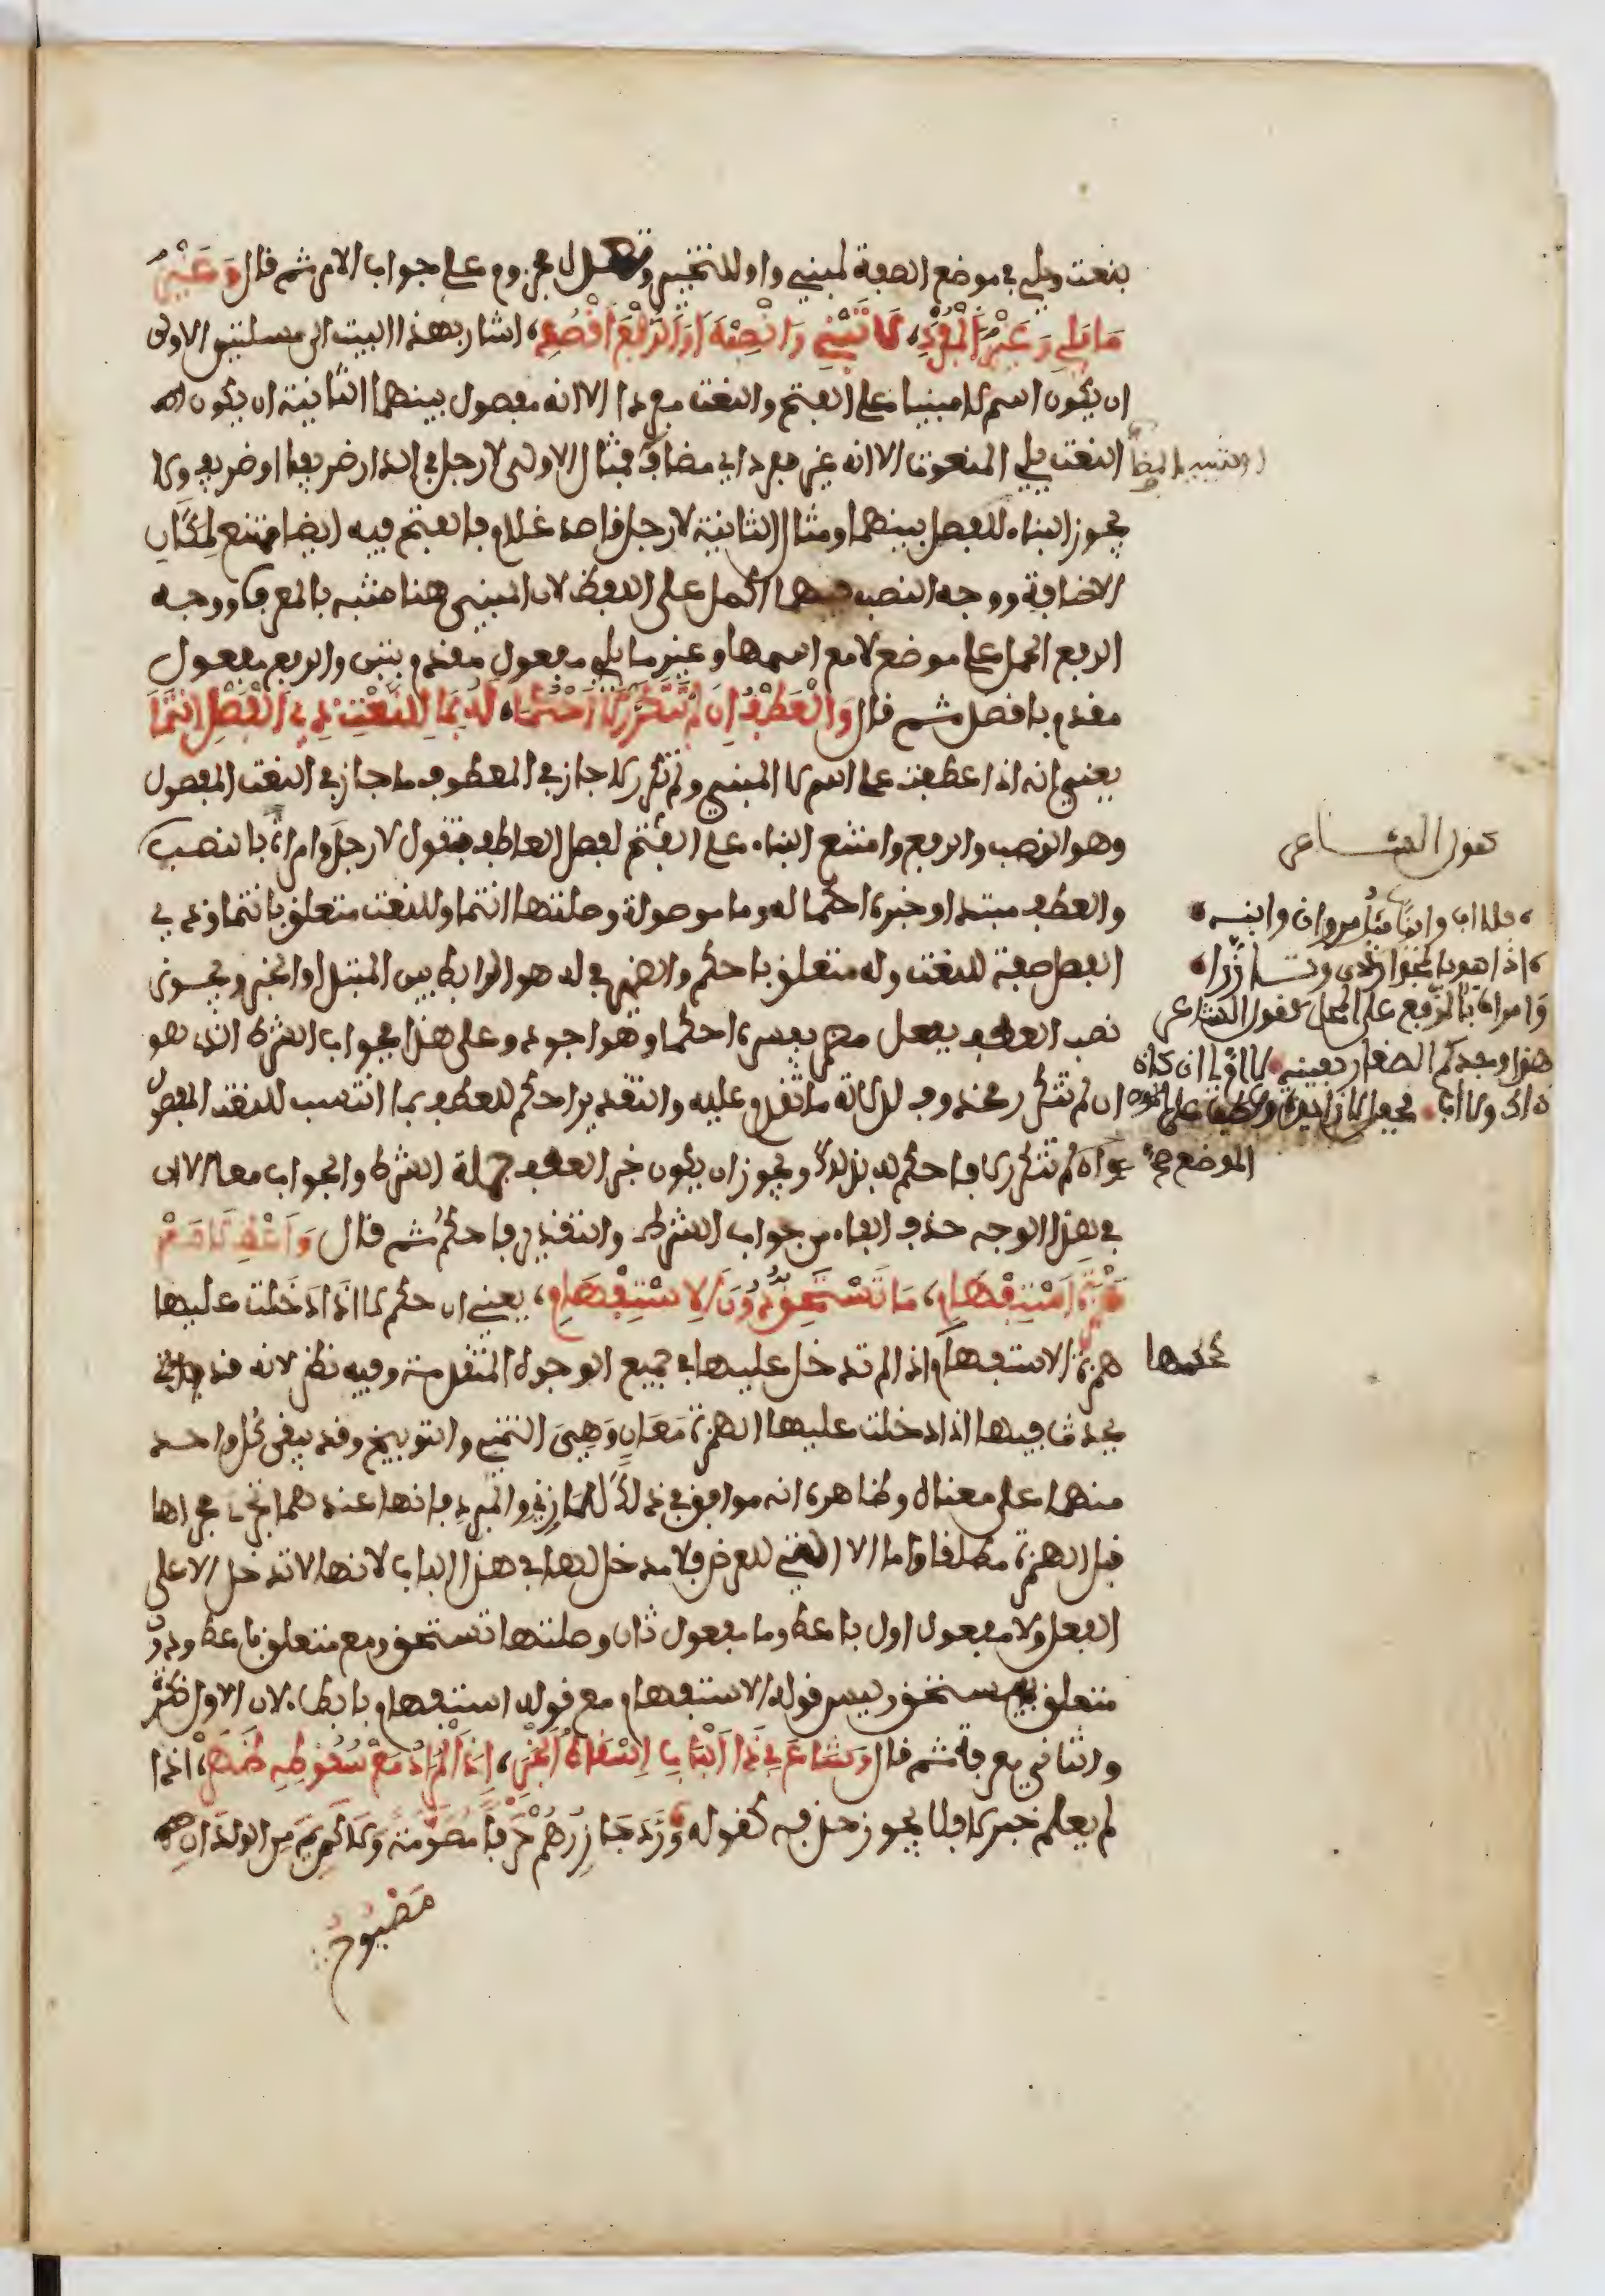 بنعت ويلي في موضع الصفة لمبني واو للتخيير وتعدل مجزوم على جواب الامر ثم قال وَغَيْرَ
مَا يَلِي وَغَيْرَ الْمُفْرَدِ، لَا تَبْنِ وَانْصِبْهُ أَوِ الرَّفْعَ اقْصِدِ، اشار بهذا البيت الى مسئلتين الاولى
ان يكون اسم لا مبنيا على الفتح والنعت مفردا الا انه مفصول بينهما الثانية ان يكون
النعت يلي المنعوت الا انه غير مفرد اي مضاف فمثال الاولى لا رجل في الدار ضريفا او ضريف ولا
او شبيه بالمضاف
يجوز البناء للفصل بينهما ومثال الثانية لا رجل قاصد غلام فالفتح فيه ايضا ممتنع لمكان
الاضافة ووجه النصب فيهما الحمل على اللفظ لان المبني هنا مشبه بالمعرب ووجه
الرفع الحمل على موضع لا مع اسمها وغير ما يلي مفعول مقدم بتبن والرفع مفعول
مقدم باقصد ثم قال وَالْعَطْفُ إِنْ لَمْ تَتَكَرَّرْ لَا احْكُمَا، لَهُ بِمَا لِلنَّعْتِ ذِي الْفَصْلِ انْتَمَا
يعني انه اذا عطفت على اسم لا المبني ولم تكرر لا جاز في المعطوف ما جاز في النعت المفصول
وهو النصب والرفع وامتنع البناء على الفتح لفصل العاطف فتقول لا رجل وامراة بالنصب
كقول الشاعر
، فلا اب وابنا مثل مروان وابنه
، اذا هو بالمجد ارتدى وتازرا
وامراة بالرفع على المحل كقول الشاعر
هذا وجدكم الصغار بعينه لا ام لي ان كان
ذاك ولا اب
الموضع صح
والعطف مبتدا وخبره احكما له وما موصولة وصلتها انتما وللنعت متعلق بانتما وذي في
الفصل صفة للنعت وله متعلق باحكم والضمير في له هو الرابط بين المبتدا والخبر ويجوز
نصب العطف بفعل مضمر يفسره احكما وهو اجود وعلى هذا فجواب الشرط الذي هو
ان لم تتكرر محذوف لدلالة ما تقدم عليه والتقدير احكم للعطف بما انتسب للنعت المفصول
وانه لم تتكرر لا فاحكم له بذلك ويجوز ان يكون خبر العطف جملة الشرط والجواب معا الا ان
في هذا الوجه حذف الفاء من جواب الشرط والتقدير فاحكم ثم قال وَأَعْطِ لَا مَعْ
هَمْزَةِ اسْتِفْهَامِ، مَا تَسْتَحِقُّ دُونَ الِاسْتِفْهَامِ، يعني ان حكم لا اذا دخلت عليها
همزة الاستفهام حكمها اذا لم تدخل عليها في جميع الوجوه المتقدمة وفيه نظر لانه قد
يحدث فيها اذا دخلت عليها الهمزة مَعَانٍ وَهِيَ التمني والتوبيخ وقد يبقى كل واحد
منهما على معناه وظاهره انه موافق في ذلك للمازني والمبرد فانها عندهما تجري مجراها
قبل الهمزة مطلقا واما الا التي للعرض فلا مدخل لها في هذا الباب لانها لا تدخل الا على
الفعل ولا مفعول اول باعط وما مفعول ثان وصلتها تستحق ومع متعلق باعط ودون
متعلق بتستحق وليس قوله الاستفهام مع قوله استفهام بايطاء لان الاول نكرة
والثاني معرفة ثم قال وَشَاعَ فِي ذَا الْبَابِ إِسْقَاطُ الْخَبَرْ، إِذَا الْمُرَادُ مَعْ سُقُوطِهِ ظَهَرْ، اذا
لم يعلم خبر لا فلا يجوز حذفه كقوله وَرَدَّ جَازِرُهُمْ حَرْفًا مُصَرَّمَةً وَلَا كَرِيمَ مِنَ الْوِلْدَانِ
مَصْبُوحُ